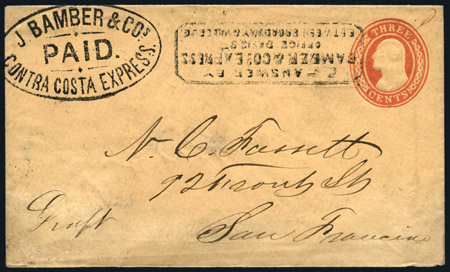 J. BAMBER & COS
PAID.
CONTRA COSTA EXPRESS.
ANSWER BY
BAMBER & COS. EXPRESS
OFFICE DAVIS ST
BETWEEN BROADWAY & VALLEJO
THREE
CENTS
N. C. Fassett
92 Front St
San Francisco